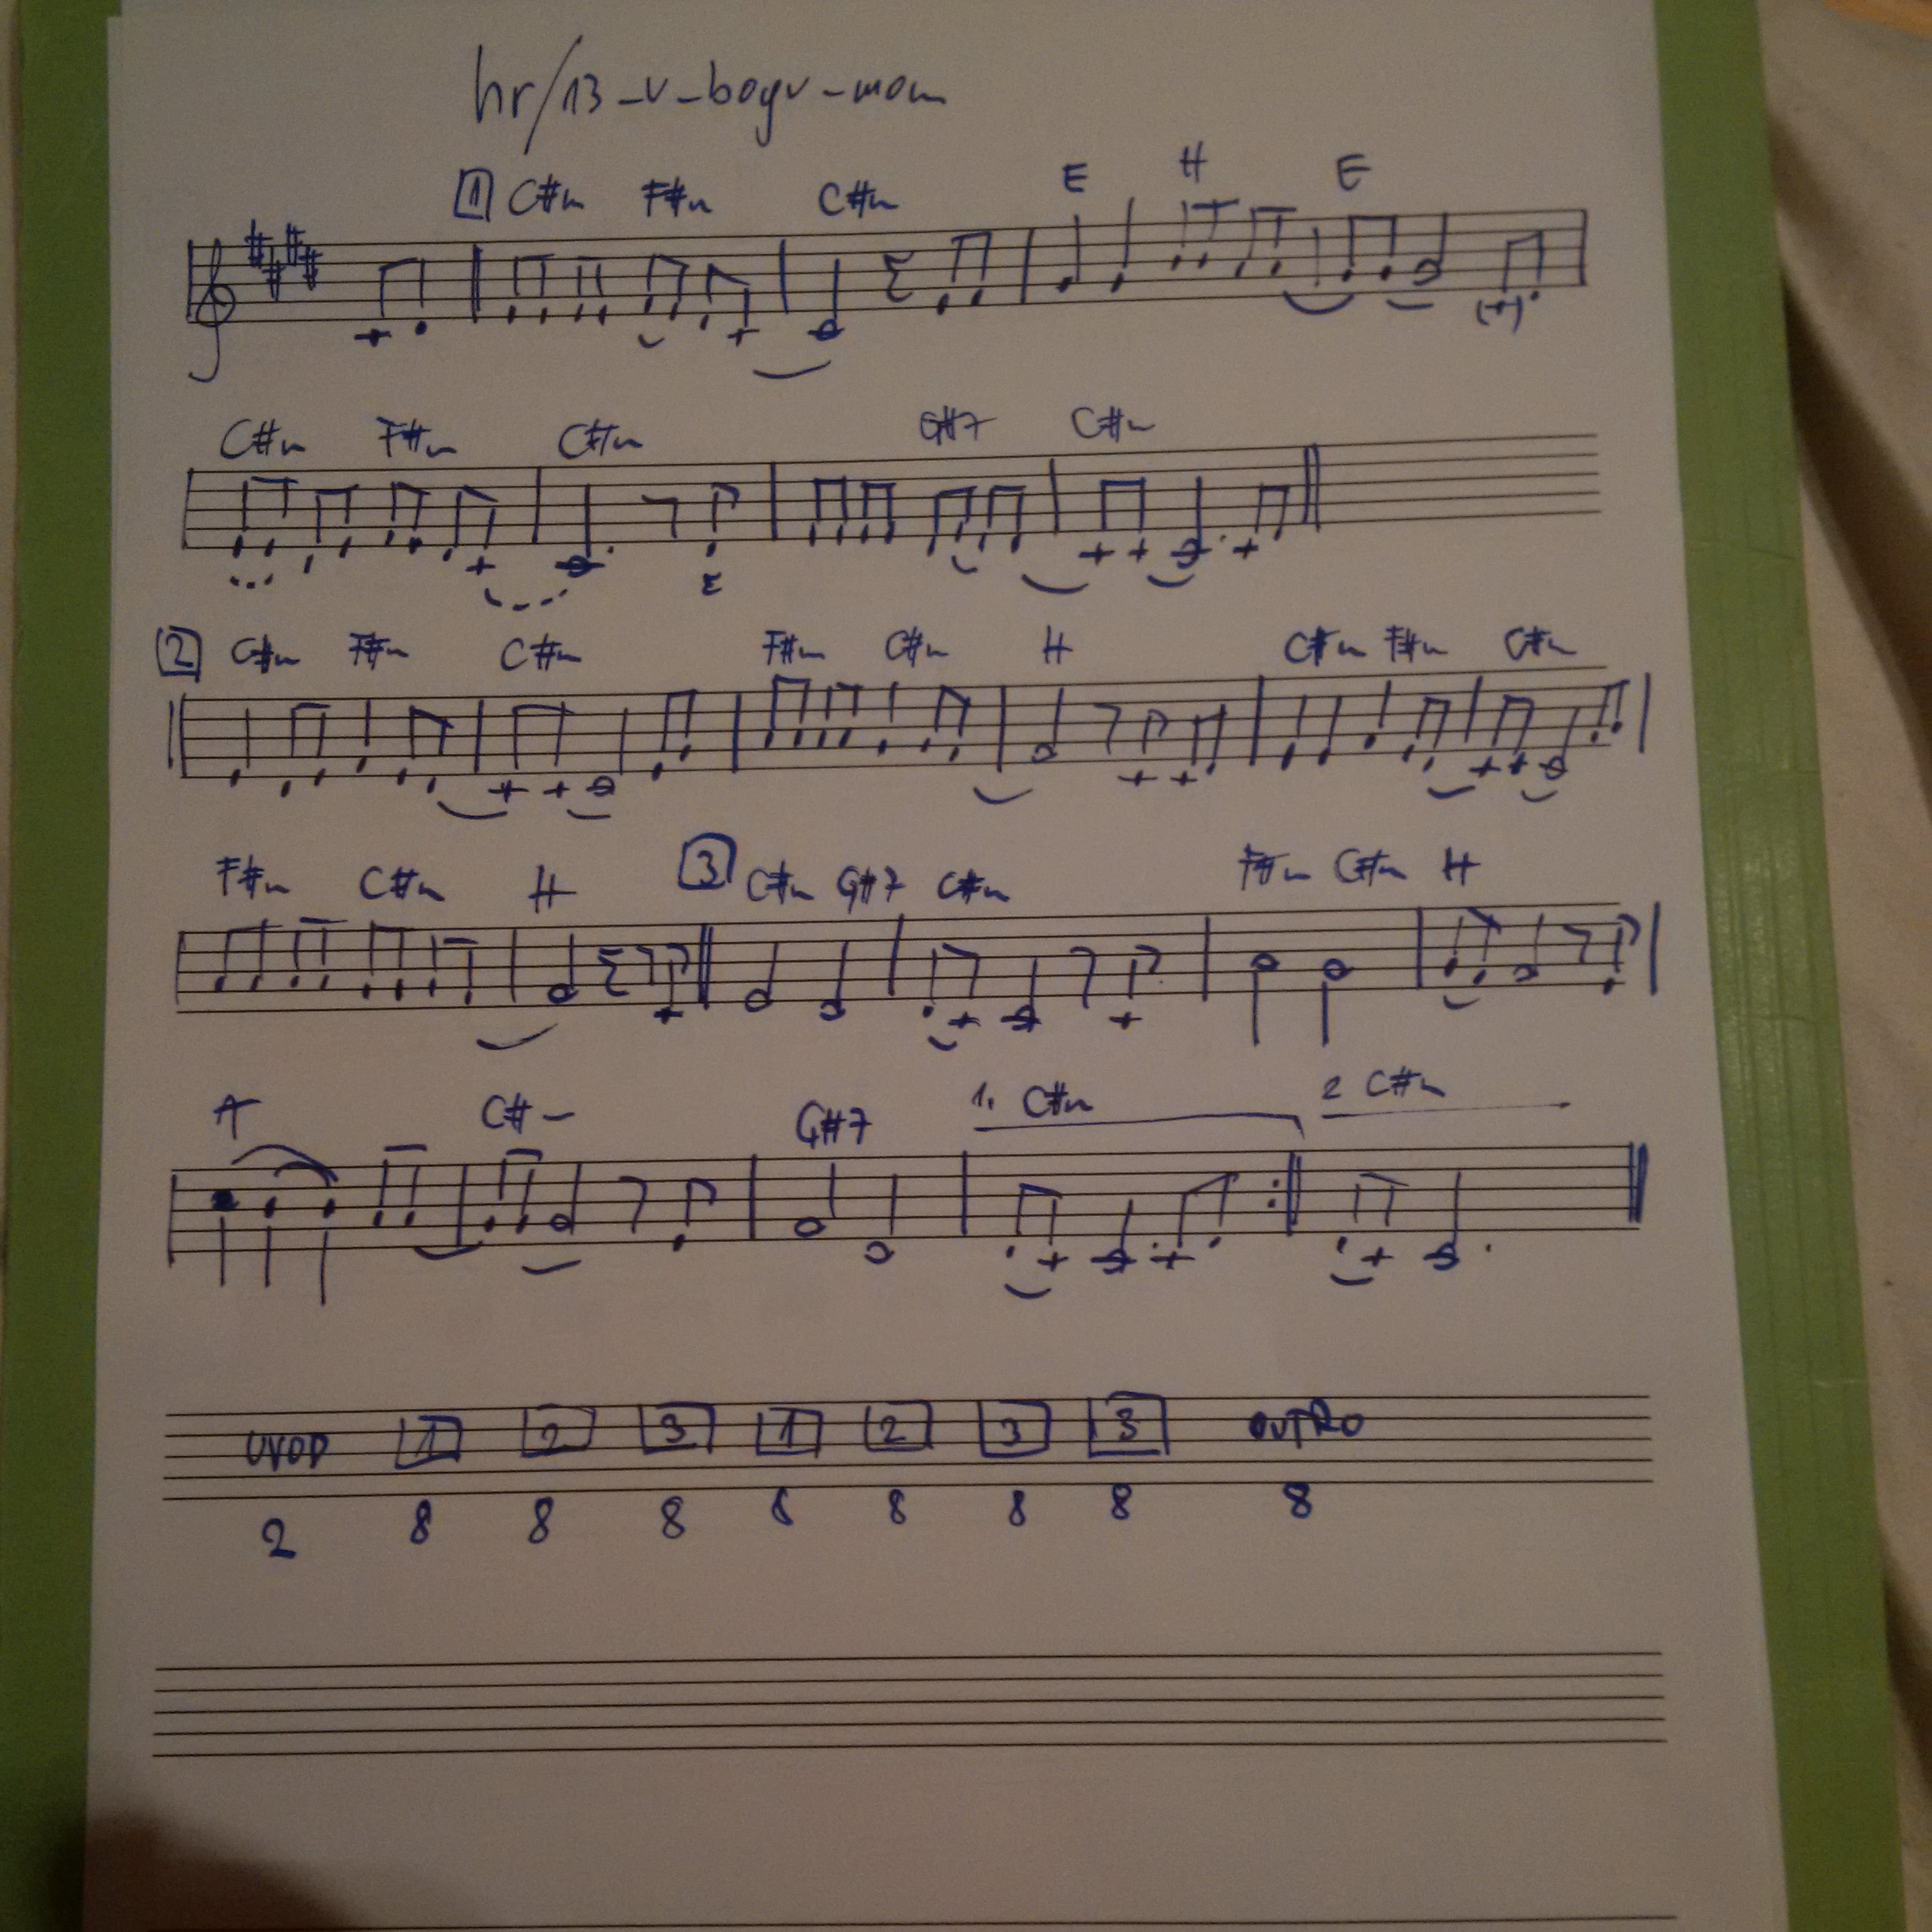 hr/13_v_bogu_mom
1 C#m F#m C#m E H E
(+)
C#m F#m C#m G#7 C#m
2 C#m F#m C#m F#m C#m H C#m F#m C#m
F#m C#m H 3 C#m G#7 C#m F#m C#m H
A C#m G#7 1. C#m 2 C#m
UVOD 1 2 3 1 2 3 3 OUTRO
2 8 8 8 8 8 8 8 8